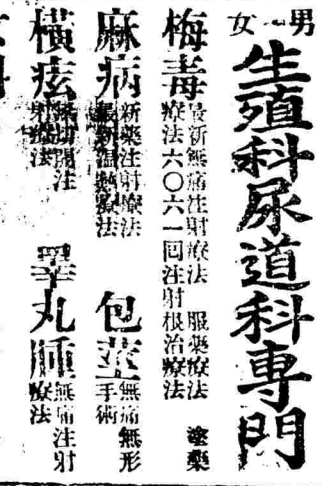 男女
生殖科尿道科専門
梅毒
最新無痛注射療法 服薬療法 塗薬
療法六〇六一回注射根治療法
麻病
新薬注射療法
最新温熱療法
包莖
無痛無形
手術
横痃
無切開注
射療法
睾丸腫
無痛注射
療法